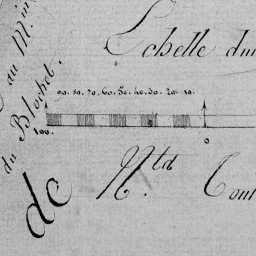 Echelle du
90. 80. 70. 60. 50. 40. 30. 20. 10.
100.
0
au M.in
du Blochet.
de
N.ta Cont